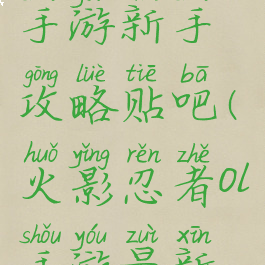 手游新手
gōng lüè tiē bā
攻略贴吧(
huǒ yǐng rěn zhě
火影忍者Ol
shǒu yóu zuì xīn
手游最新